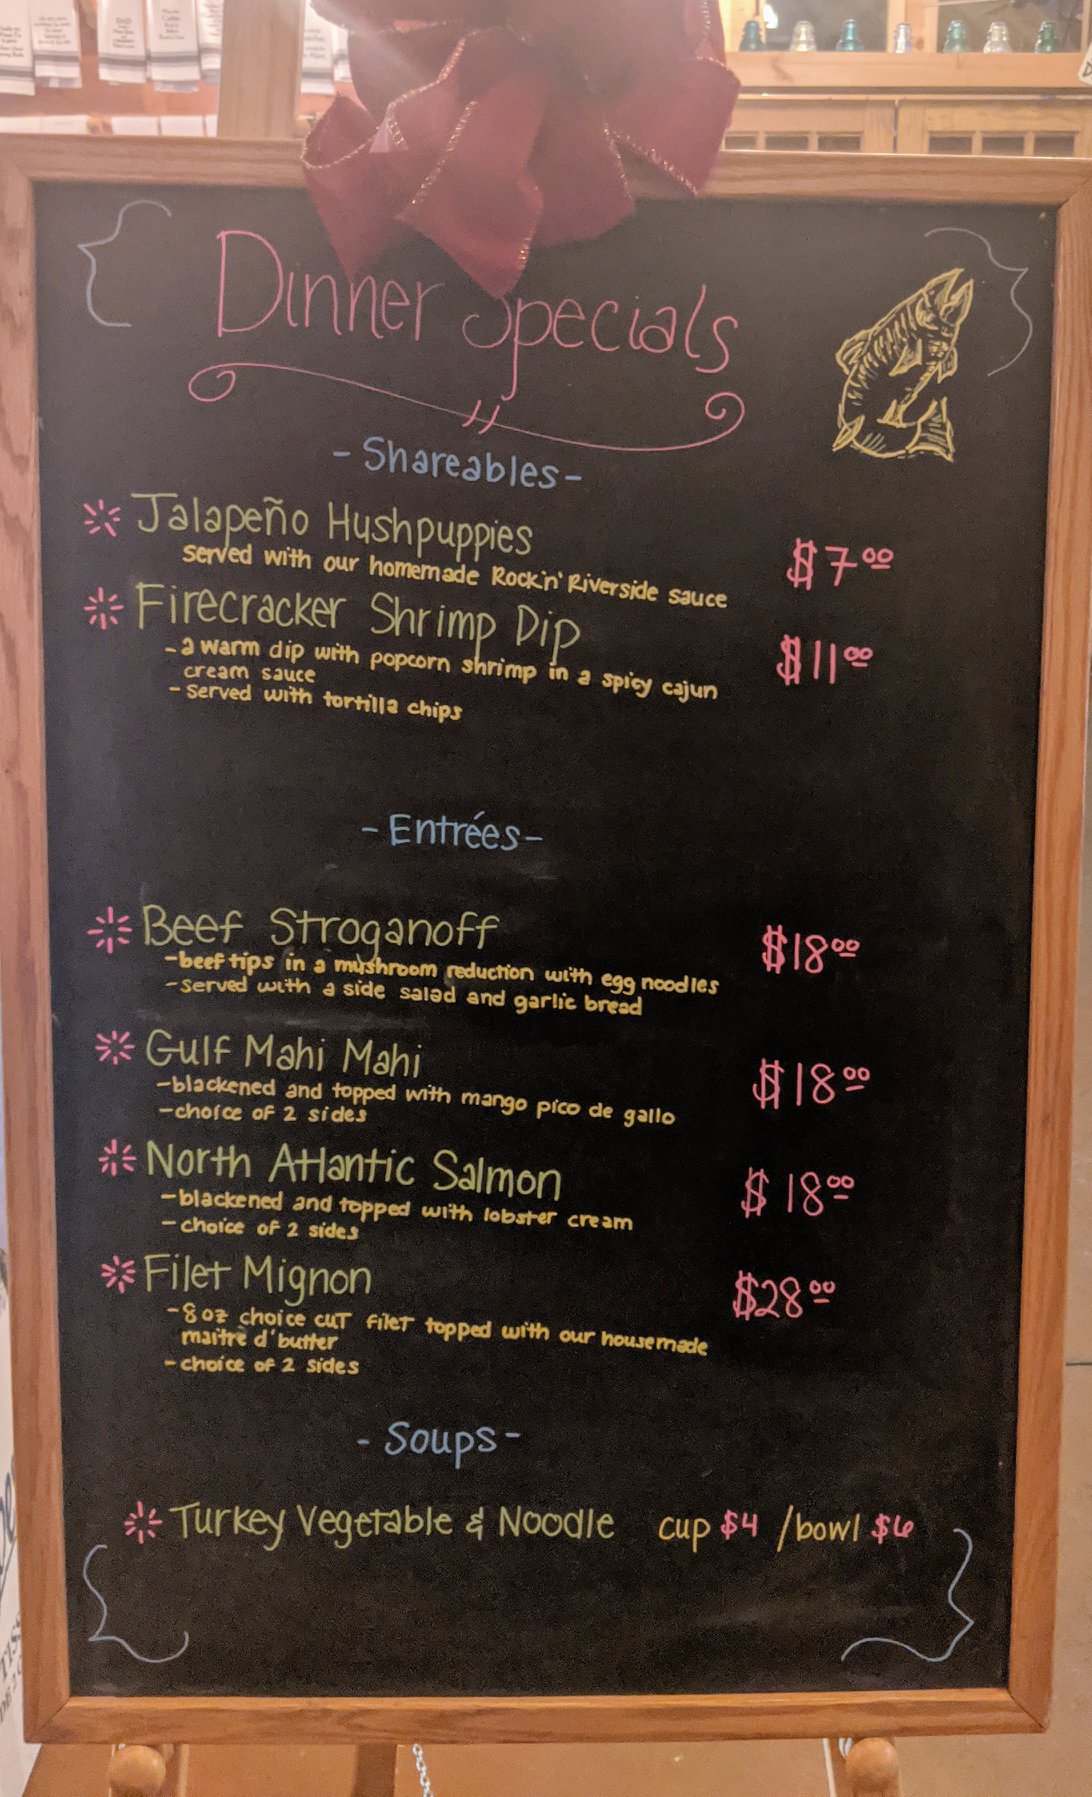 Dinner Specials
- Shareables -
Jalapeño Hushpuppies
served with our homemade Rock'n' Riverside sauce
$7.00
Firecracker Shrimp Dip
- a warm dip with popcorn shrimp in a spicy cajun
cream sauce
- served with tortilla chips
$11.00
- Entrées -
Beef Stroganoff
- beef tips in a mushroom reduction with egg noodles
- served with a side salad and garlic bread
$18.00
Gulf Mahi Mahi
- blackened and topped with mango pico de gallo
- choice of 2 sides
$18.00
North Atlantic Salmon
- blackened and topped with lobster cream
- choice of 2 sides
$18.00
Filet Mignon
- 8 oz choice cut filet topped with our housemade
maître d' butter
- choice of 2 sides
$28.00
- Soups -
Turkey Vegetable & Noodle cup $4 /bowl $6
DAD